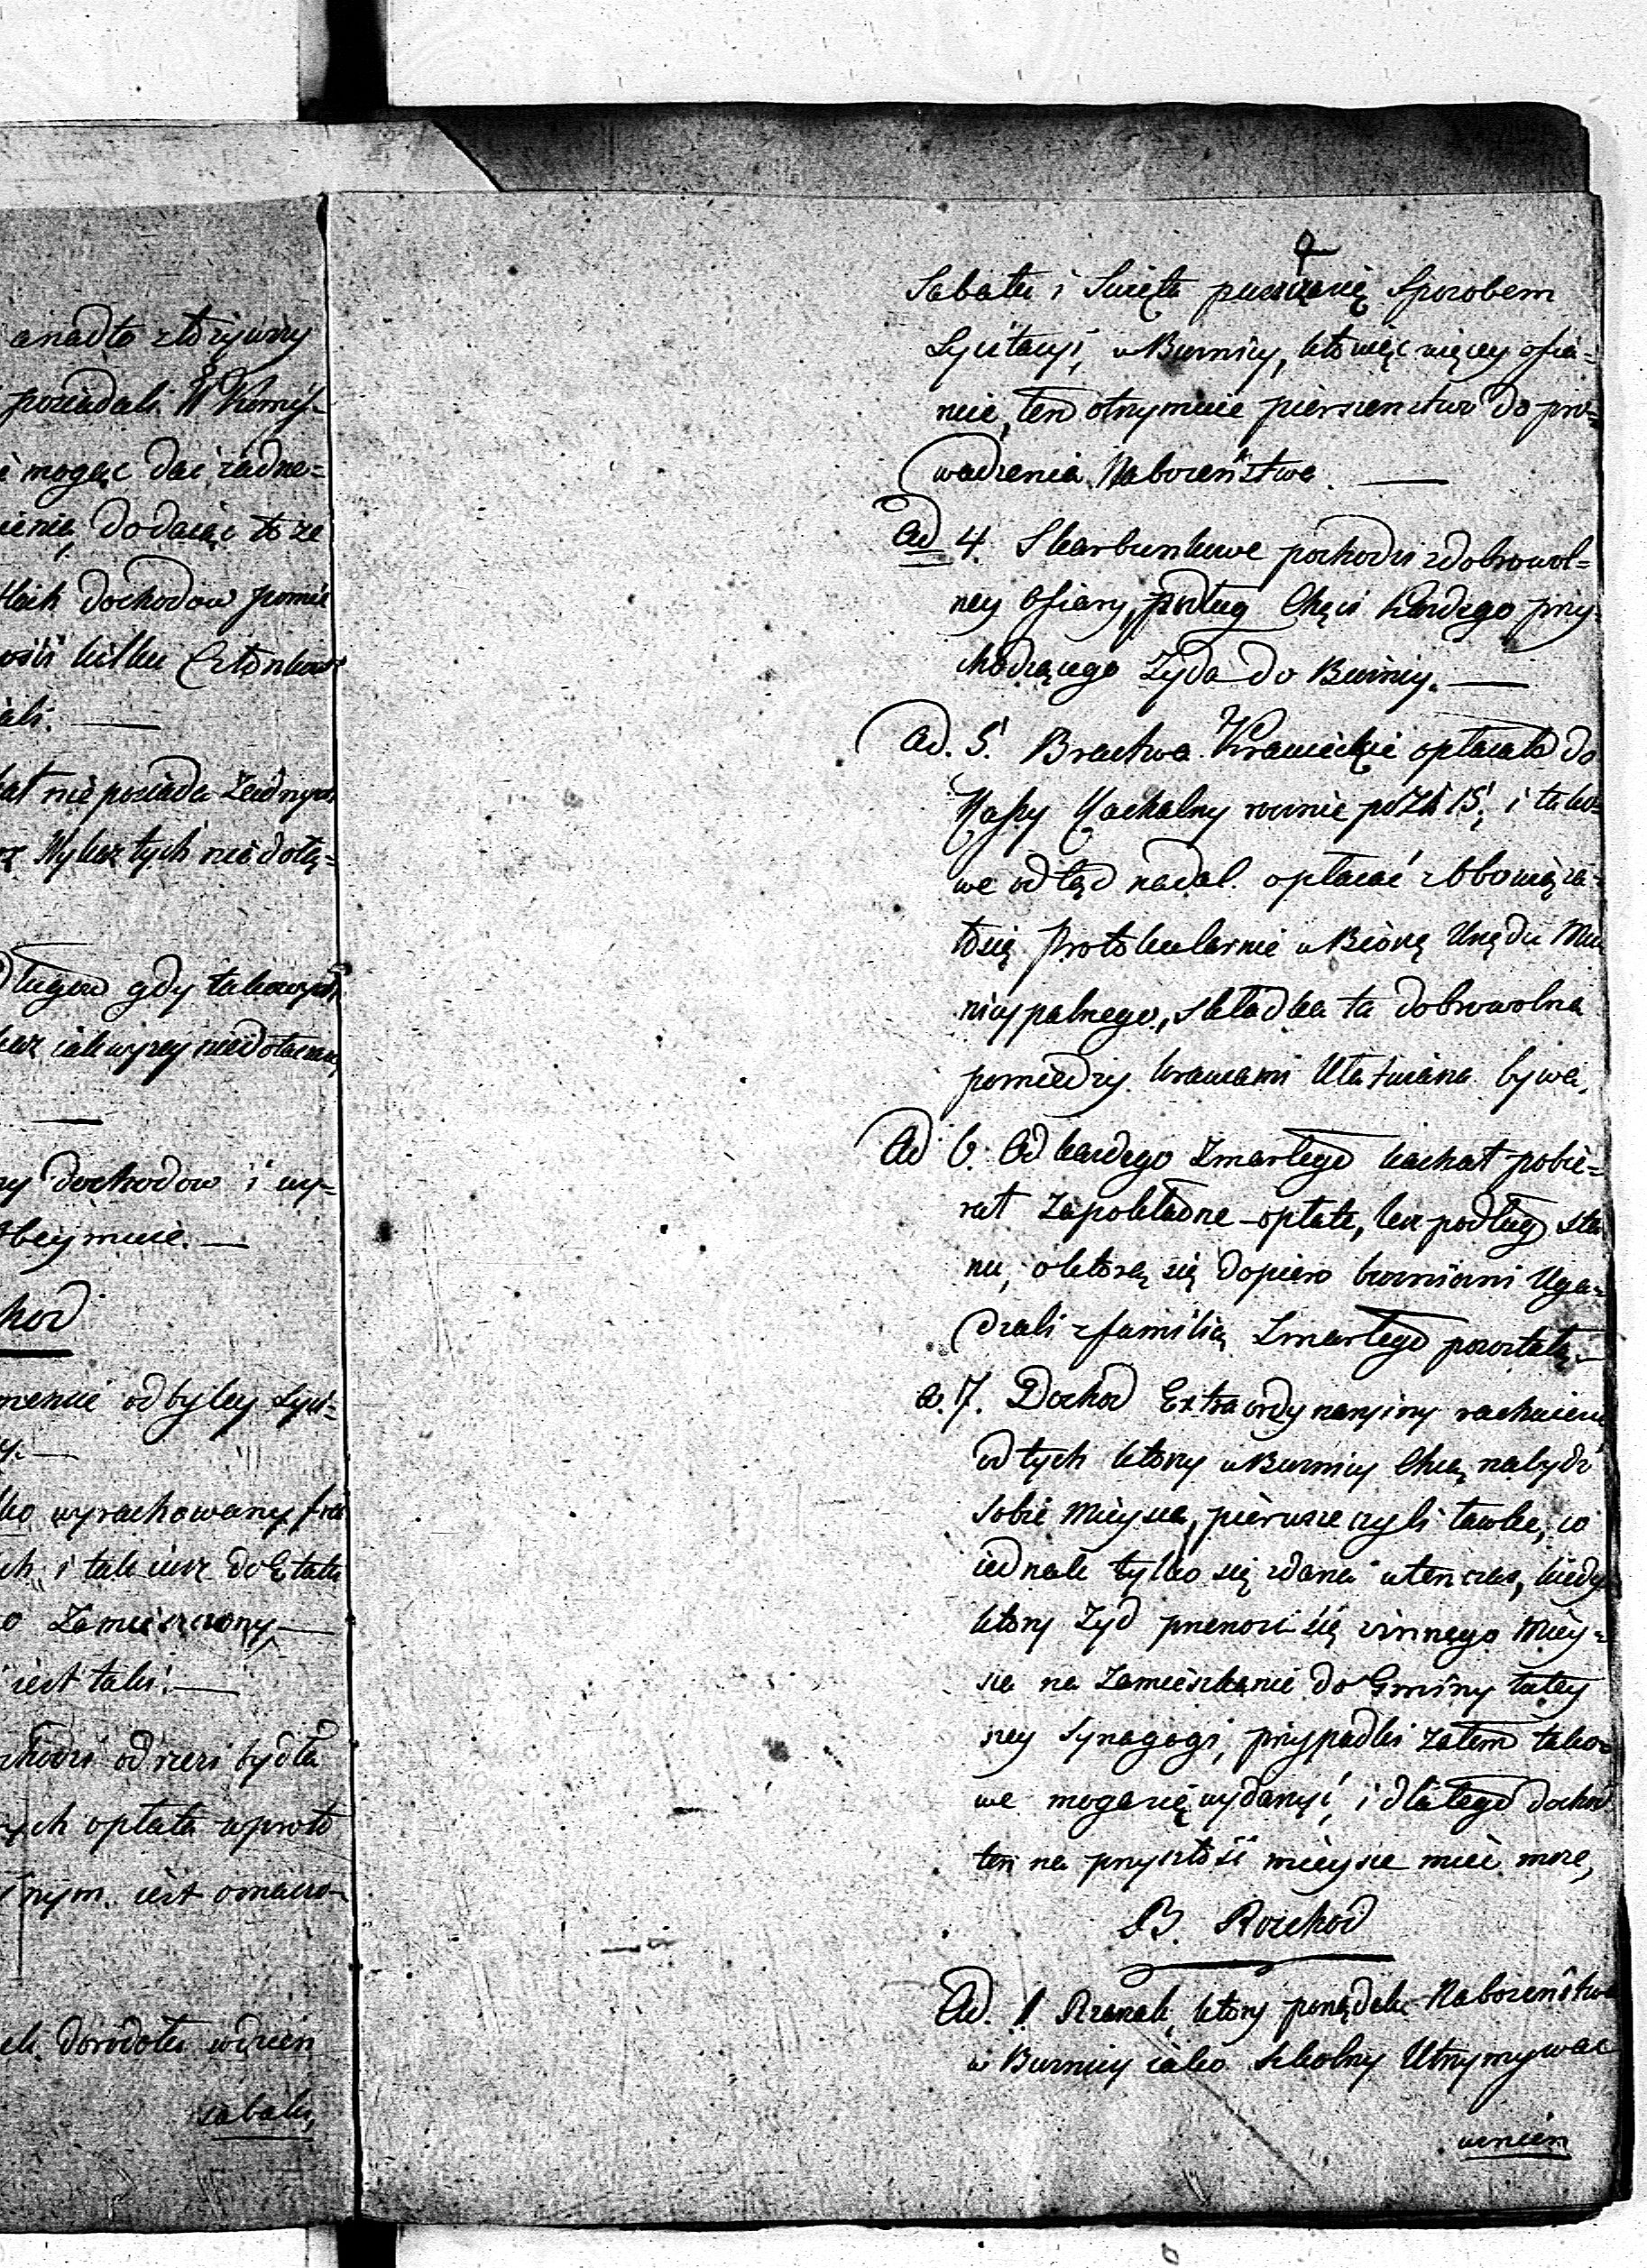 a nadto złożywszy
posiadali. W Komis-
mogąc dać żadne=
dodaiąc to że
dochodow pomie
kilku Członkow
ali. —
nieposiada żadnych
Wykaz tych niedołą=
Długow gdy takowych
iak wyzey niedołacza
—
dochodow i wy=
obeymuie. —
hod
odbytey Lyci=
y. —
wyrachowany
ch i tak iuż do Etatu
o Zamieszczony —
iest taki. —
chodzi od rzezi bydła
ych opłata w proto
nym iest oznaczo-
dorodotu w dzien
sabatu,
4
Sabatu i Swięta puszczenie Sposobem
Lycitacyi, w Buznicy, kto więc więcey ofia=
ruie, ten otrzymuie pierszenstwo do pro=
wadzenia Nabozeństwa. —
Ad 4. Skarbunkowe pochodzi z dobrowol=
ney Ofiary, podług Chęci każdego przy
chodzącego Żyda do Buznicy. —
Ad. 5. Bractwo Krawieckie opłacało do
Kassy Kachalny rocznie po Zł 15, i tako=
we odtąd nadal opłacać zobowiąza=
ło się protokularnie w Biórze Urzędu Mu
nicypalnego, składka ta dobrowolna
pomiedzy krawcami Ułatwiana bywa.
Ad 6. Od kazdego Zmarłego kachał pobie=
rał Zapokładne opłate, lecz podług sta
nu, o którą się dopiero bozniczni Uga=
dzali z familią Zmarłego pozostałą. —
ad. 7. Dochod Extraordynaryiny rachuiemy
od tych ktorzy w Buznicy Chcą nabydź
sobie mieysca, pierwsze czyli ławke, co
iednak tylko się zdarza wtenczas, kiedy
ktory Zyd przenosi się z innego miey=
sca na Zamieszkanie do Gminy tutey
szey Synagogi, przypadki Zatem tako=
we mogą się wydarzyć, i dlatego dochod
ten na przyszłość mieysce mieć moze,
B. Rozchod
Ad. 1 Rzezak, ktory porządek Nabożeństwa
w Buznicy iako szkolny Utrzymywać
winien